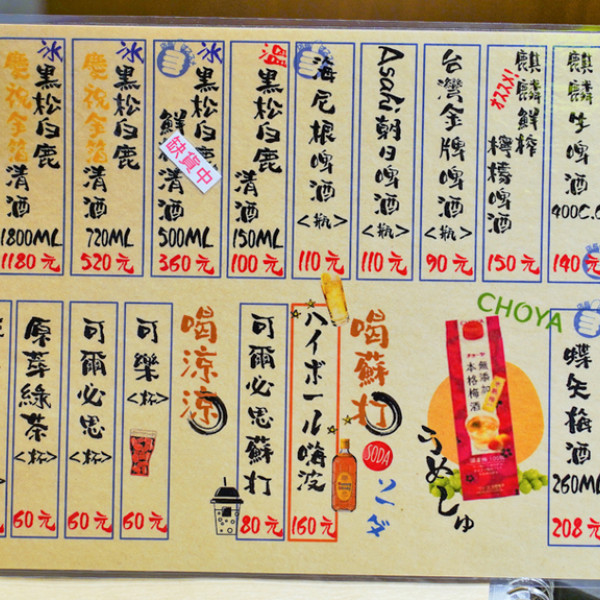 麒麟生啤酒
400C.C
140元
麒麟鮮榨檸檬啤酒
オススメ!
150元
台灣金牌啤酒<瓶>
90元
Asahi朝日啤酒<瓶>
110元
海尼根啤酒<瓶>
110元
溫
黑松白鹿清酒
150ML
100元
冰
黑松白鹿
鮮 清酒
缺貨中
500ML
360元
冰
黑松白鹿
慶祝金箔清酒
720ML
520元
冰
黑松白鹿
慶祝金箔清酒
1800ML
1180元
CHOYA
蝶矢梅酒
260ML
208元
チョーヤ
無添加
本格梅酒
うめしゅ
喝蘇打
SODA
ソーダ
ハイボール嗨波
160元
可爾必思蘇打
80元
喝涼涼
可樂<杯>
60元
可爾必思<杯>
60元
原萃綠茶<杯>
60元